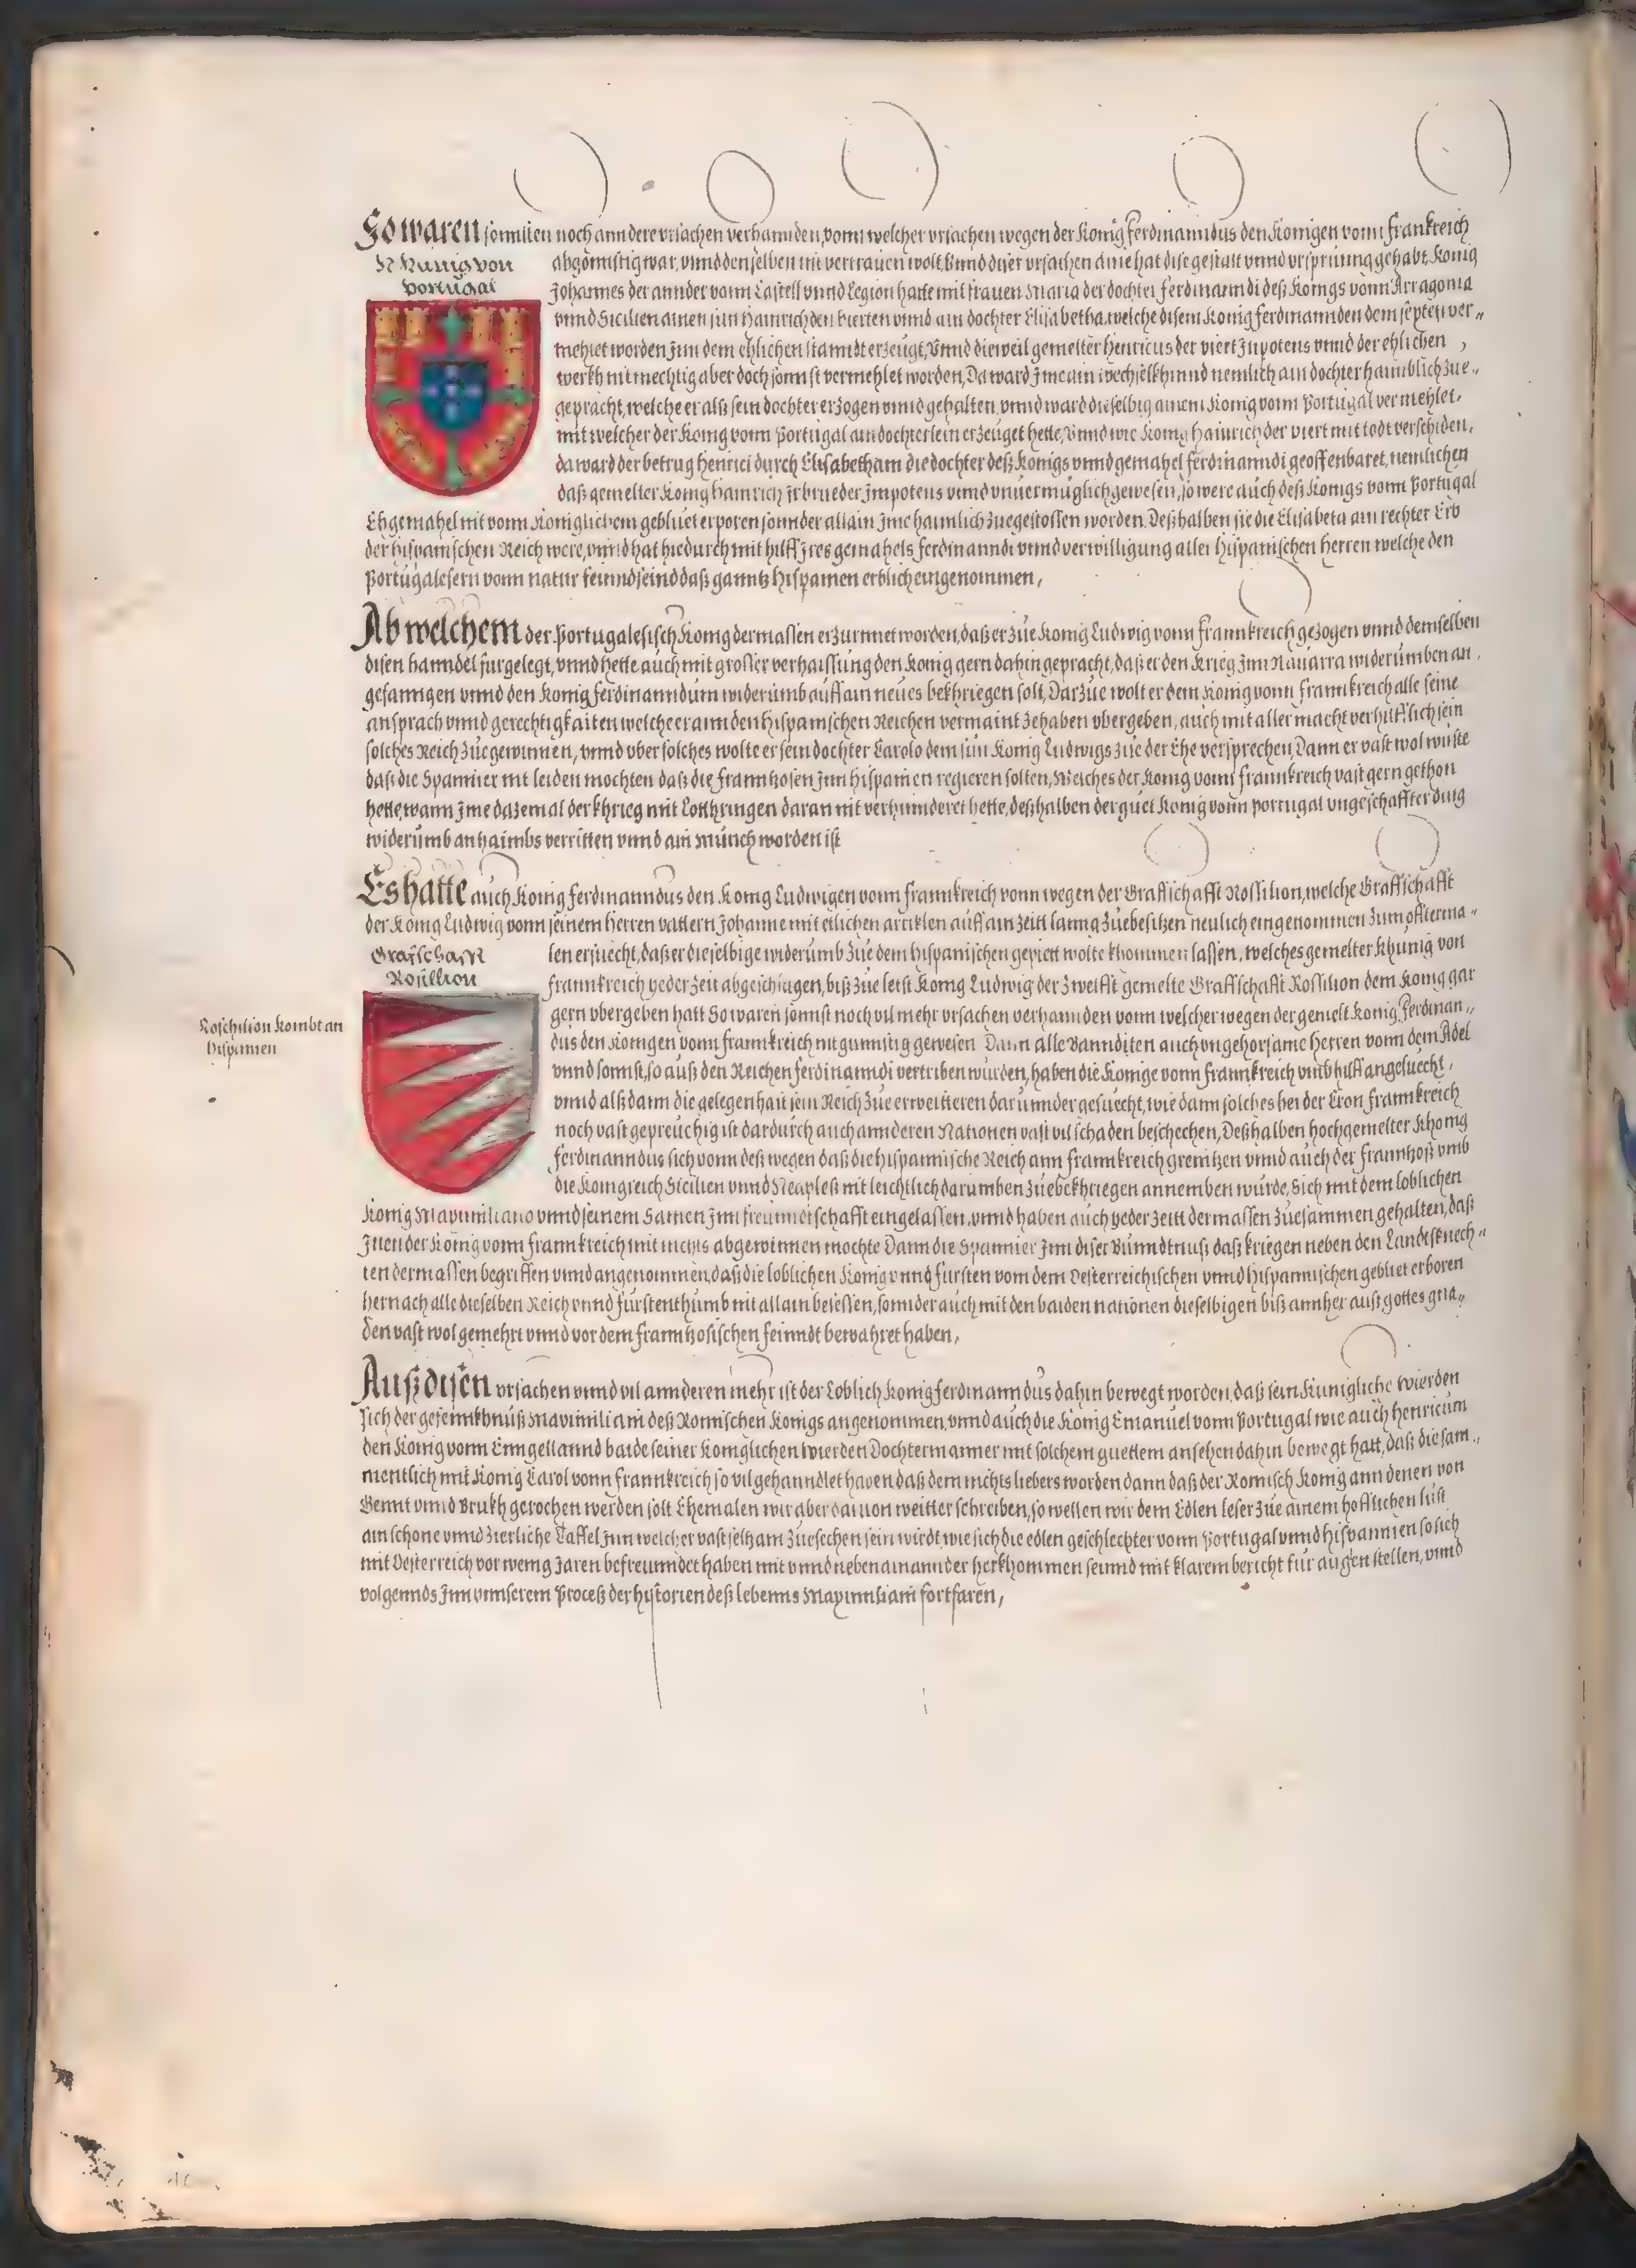 So waren sonnsten noch anndere vrsachen verhannden, vonn welcher vrsachen wegen der König Ferdinanndus den Königen vonn Franckreich
K Künig von
Portugal
abgönnstig war, vnnd denselben nit vertrauen wolt, Vnnd diser vrsachen aine hat dise gestalt vnnd vrsprüng gehabt, König
Johannes der annder vonn Castell vnnd Legion hatte mit frauen Maria der dochter Ferdinanndi deß Königs vonn Arragonia
vnnd Sicilien ainen sun Hainrich den Vierten vnnd ain dochter Elisabetha, welche disem König Ferdinannden dem ver„
mehlet worden Jnn dem ehlichen stanndt erzeugt, Vnnd dieweil gemelter Henricus der viert Jnpotens vnnd der ehlichen
werkh nit mechtig aber doch sonnst vermehlet worden, Da ward Jme ain wechselkhinnd nemlich ain dochter haimblich zue„
gepracht, welche er alß sein dochter erzogen vnnd gehalten, vnnd ward dieselbig ainem König vonn Portugal vermehlet,
mit welcher der König vonn Portugal ain dochterlein erzeuget hette, Vnnd wie König Hainrich der viert mit todt verschiden,
da ward der betrug Henrici durch Elisabetham die dochter deß Königs vnnd gemahel Ferdinanndi geoffenbaret, nemlichen
daß gemelter König Hainrich Jr brueder Jmpotens vnnd vnuermüglich gewesen, so were auch deß Königs vonn Portugal
Ehgemahel nit vonn Königlichem gebluet erporen sonnder allain Jme haimlich zuegestossen worden. Deßhalben sie die Elisabeta ain rechter Erb
der hispanischen Reich were, vnnd hat hiedurch mit hilff Jres gemahels Ferdinanndi vnnd verwilligung aller hispanischen herren welche den
Portugalesern vonn natur feinnd seind daß ganntz Hispanien erblich eingenommen,
Ab welchem der Portugalesisch König dermassen erzürnnet worden, daß er zue König Ludwig vonn Frannkreich gezogen vnnd demselben
disen hanndel fürgelegt, vnnd hette auch mit grosser verhaissung den König gern dahin gepracht, daß er den Krieg Jnn Nauarra widerumben an„
gefanngen vnnd den König Ferdinanndum widerumb auff ain neues bekhriegen solt, Darzue wolt er dem König vonn Frannkreich alle seine
ansprach vnnd gerechtigkaiten welche er ann den hispanischen Reichen vermaint zehaben vbergeben, auch mit aller macht verhilflich sein
solches Reich zuegewinnen, vnnd vber solches wolte er sein dochter Carolo dem sun König Ludwigs zue der Ehe versprechen, Dann er vast wol wüste
daß die Spannier nit leiden mochten daß die Frannzosen Jnn Hispanien regieren solten, Welches der König vonn Frannkreich vast gern gethon
hette, wann Jme dazemal der Khrieg mit Lotthringen daran nit verhinnderet hette, deßhalben der guet König vonn Portugal vngeschaffter ding
widerumb anhaimbs verritten vnnd ain Münch worden ist
Es hatte auch König Ferdinanndus den König Ludwigen vonn Frannkreich vonn wegen der Graffschafft Rossilion, welche Graffschafft
der König Ludwig vonn seinem herren vattern Johanne mit etlichen articklen auff ain zeitt lanng zuebesitzen neulich eingenommen zum offterma„
Grafschafft
Rosillion
len ersuecht, daß er dieselbige widerumb zue dem hispanischen gepiett wolte khommen lassen, welches gemelter Khünig von
Frannkreich yeder zeit abgeschlagen, biß zue letst König Ludwig der zwelfft gemelte Graffschafft Rossilion dem König gar
Roschilion kombt an
Hispanien
gern vbergeben hatt So waren sonnst noch vil mehr vrsachen verhannden vonn welcher wegen der gemelt König Ferdinan„
dus den Königen vonn Frannkreich nit günnstig gewesen Dann alle Banniditen auch vngehorsame herren vonn dem Adel
vnnd sonnst, so auß den Reichen Ferdinanndi vertriben wurden, haben die Könige vonn Frannkreich vmb hilff angesuecht,
vnnd alß dann die gelegenhait sein Reich zue erweitteren darunnder gesuecht, wie dann solches bei der Cron Frannkreich
noch vast gepreuchig ist dardurch auch annderen Nationen vast vil schaden beschechen, Deßhalben hochgemelter Khönig
Ferdinanndus sich vonn deß wegen daß die hispannische Reich ann Frannkreich grenitzen vnnd auch der Frannzoß vmb
die Königreich Sicilien vnnd Neapleß nit leichtlich darumben zuebekhriegen annemben wurde, Sich mit dem loblichen
König Maximiliano vnnd seinem Samen Jnn freunndtschafft eingelassen, vnnd haben auch yeder zeitt dermassen zuesammen gehalten, daß
Jnen der König vonn Frannkreich mit nichts abgewinnen mochte Dann die Spannier Jnn diser Bünndtnuß daß kriegen neben den Landtsknech„
ten dermassen begriffen vnnd angenommen, daß die loblichen König vnnd Fürsten vom dem Oesterreichischen vnnd hispannischen gebluet erboren
hernach alle dieselben Reich vnnd Fürstenthumb nit allain besessen, sonnder auch mit den baiden nationen dieselbigen biß annher auß gottes gna„
den vast wol gemehrt vnnd vor dem Frannzosischen feinndt bewahret haben,
Auß disen vrsachen vnnd vil annderen mehr ist der Loblich König Ferdinanndus dahin bewegt worden, daß sein Kunigliche wierden
sich der gefennkhnuß Maximiliani deß Romischen Königs angenommen, vnnd auch die König Emanuel vonn Portugal wie auch Henricum
den König vonn Enngellannd baide seiner Königlichen wierden Dochtermanner mit solchem guettem ansehen dahin bewegt hatt, daß die sam„
mentlich mit König Carol vonn Frannkreich so vil gehanndlet haben daß dem nichts liebers worden dann daß der Romisch König ann denen von
Gennt vnnd Brukh gerochen werden solt Ehemalen wir aber dauon weitter schreiben, so wellen wir dem Edlen leser zue ainem hofflichen lust
ain schöne vnnd zierliche Taffel Jnn welcher vast seltzam zuesechen sein wirdt, wie sich die edlen geschlechter vonn Portugal vnnd hispannien so sich
mit Oesterreich vor wenig Jaren befreunndet haben mit vnnd neben ainannder herkhommen seinnd mit klarem bericht für augen stellen, vnnd
volgennds Jnn vnnserem Proceß der hystorien deß lebenns Maximiliani fortfaren,